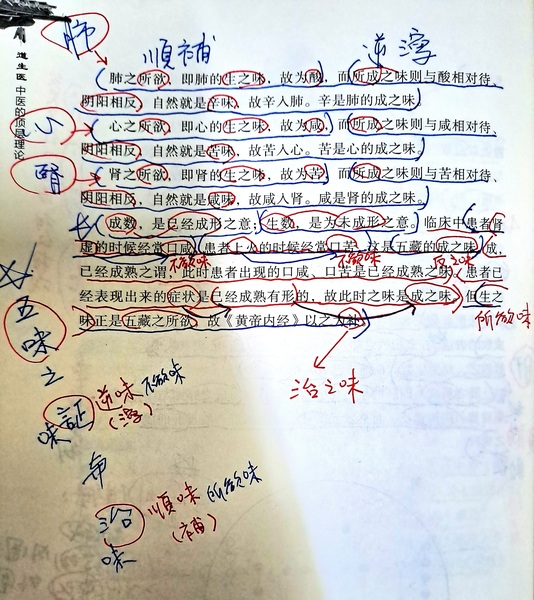 肺
順補
逆瀉
道生医 中医的顶层理论
肺之所欲，即肺的生之味，故为酸，而所成之味则与酸相对待
阴阳相反，自然就是辛味，故辛人肺。辛是肺的成之味。
心
心之所欲，即心的生之味，故为咸，而所成之味则与咸相对待
阴阳相反，自然就是苦味，故苦人心。苦是心的成之味。
腎
肾之所欲，即肾的生之味，故为苦，而所成之味则与苦相对待、
阴阳相反，自然就是咸味，故咸人肾。咸是肾的成之味。
成数，是已经成形之意；生数，是为未成形之意。临床中患者肾
虚的时候经常口咸，患者上火的时候经常口苦，这是五藏的成之味，成，
不欲味
不欲味
已经成熟之谓，此时患者出现的口咸、口苦是已经成熟之味，患者已
经表现出来的症状是已经成熟有形的，故此时之味是成之味。但生之
味正是五藏之所欲，故《黄帝内经》以之为补。
所欲味
治之味
五
味
之
証
味
逆味 不欲味
(瀉)
布
治
味
順味 所欲味
(補)